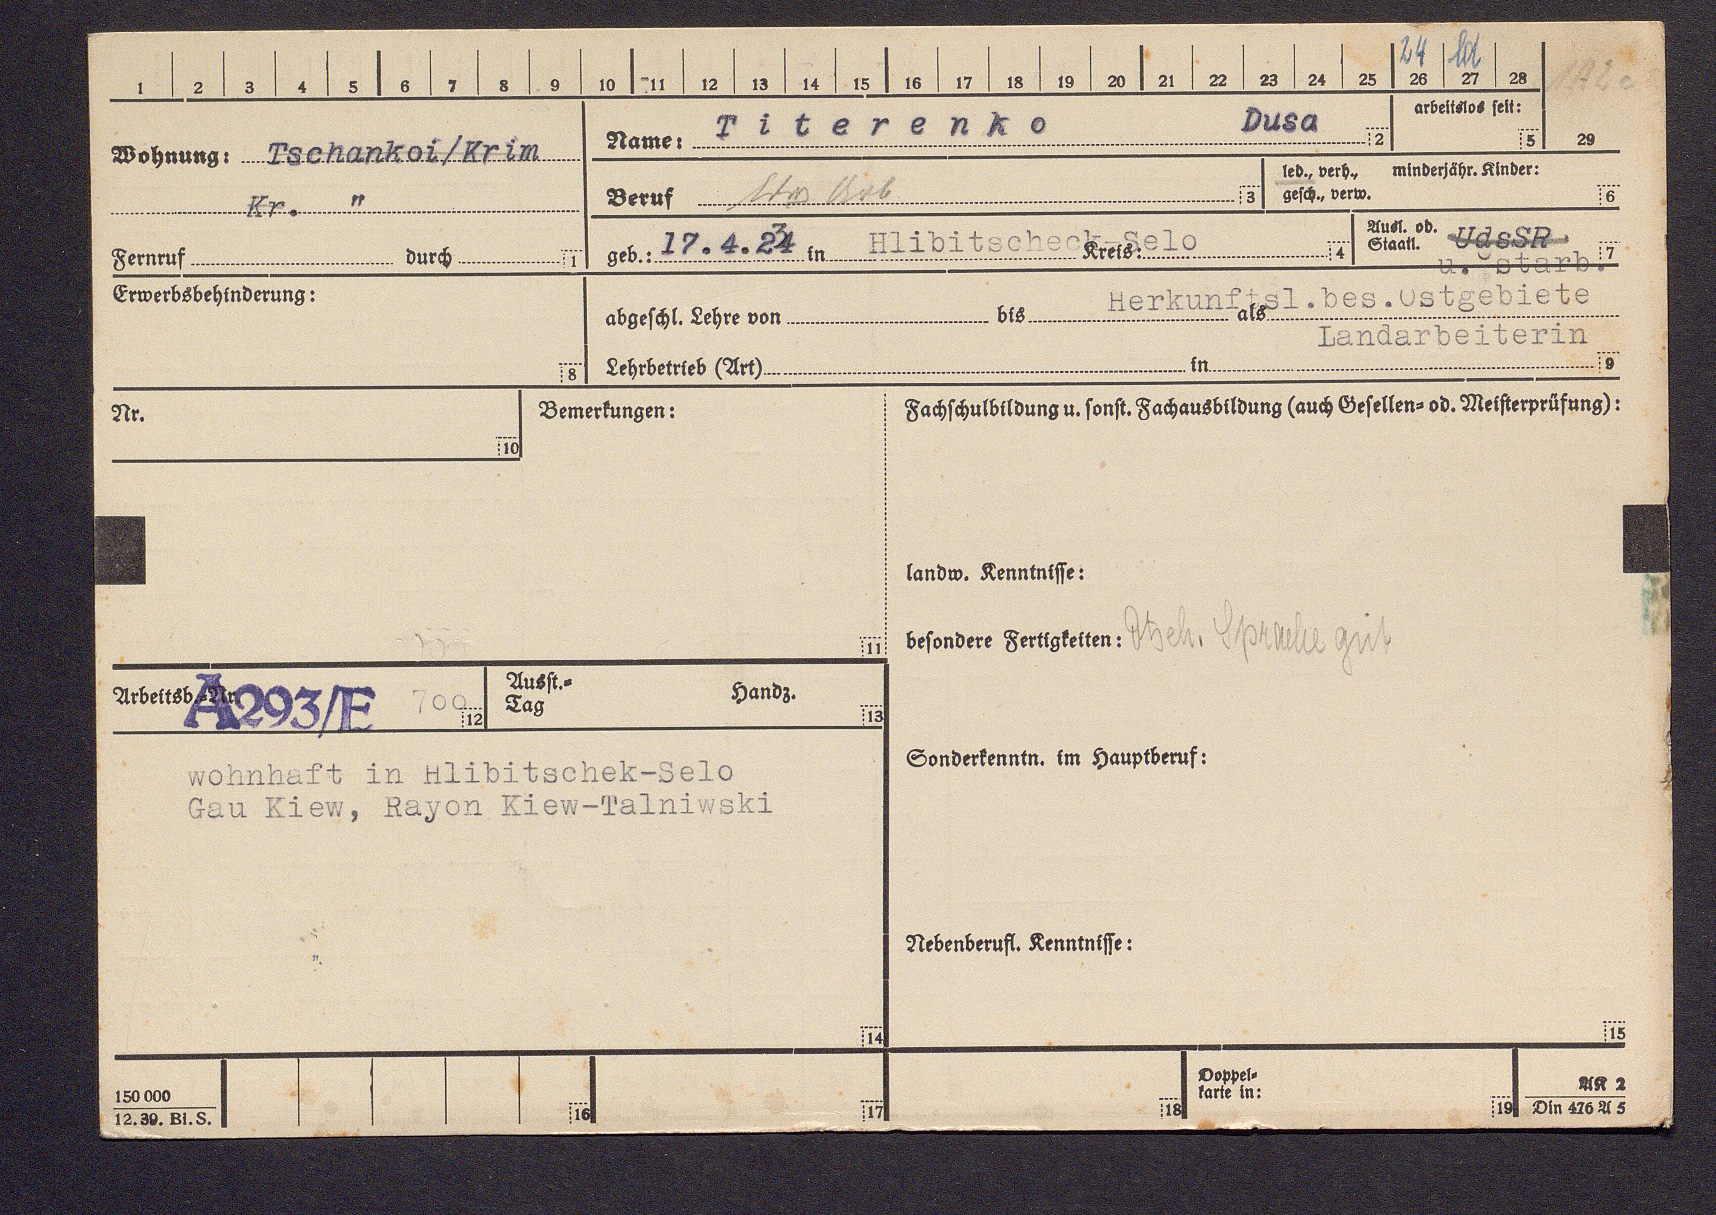 24 ld
1 2 3 4 5 6 7 8 9 10 11 12 13 14 15 16 17 18 19 20 21 22 23 24 25 26 27 28
Wohnung: Tschankoi/Krim
Kr. "
Fernruf durch 1
Name: Titerenko Dusa 2
arbeitslos seit: 5
29
Beruf 3
led., verh., gesch., verw. minderjähr. Kinder: 6
geb.: 17.4.23 in Hlibitscheck-Selo Kreis: 4
Ausl. od. Staatl. UdsSR 7
u. starb.
Erwerbsbehinderung: 8
Herkunftsl.bes.Ostgebiete
abgeschl. Lehre von bis als
Landarbeiterin
Lehrbetrieb (Art) in 9
Nr. 10
Bemerkungen: 11
Fachschulbildung u. sonst. Fachausbildung (auch Gesellen- od. Meisterprüfung):
landw. Kenntnisse:
besondere Fertigkeiten: Dtsch. Sprache gut
Arbeitsb.-Nr. A293/E 700 12
Ausst.-Tag Handz. 13
Sonderkenntn. im Hauptberuf:
wohnhaft in Hlibitschek-Selo
Gau Kiew, Rayon Kiew-Talniwski
Nebenberufl. Kenntnisse:
14
15
150 000
12.39. Bl.S.
16
17
18
Doppel-
karte in:
19
AK 2
Din 476 A 5